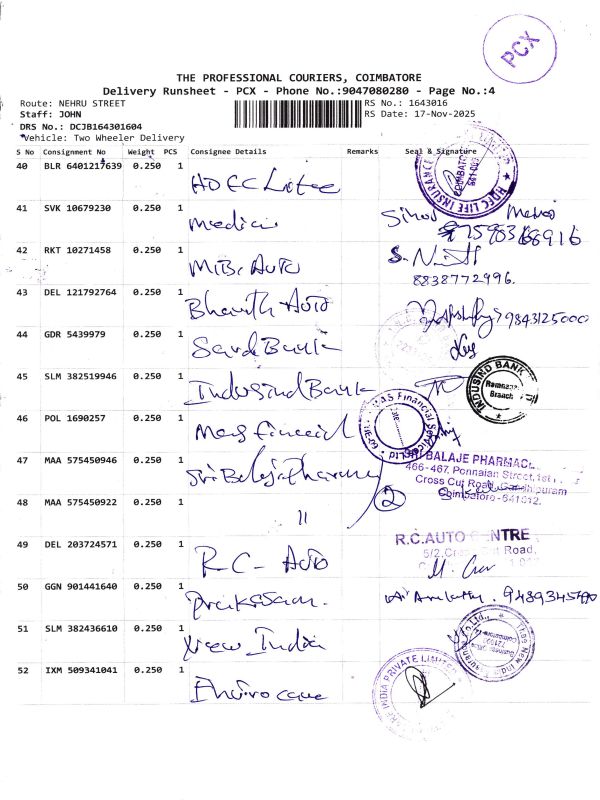 PCX
THE PROFESSIONAL COURIERS, COIMBATORE
Delivery Runsheet - PCX - Phone No.:9047080280 - Page No.:4
Route: NEHRU STREET
RS No.: 1643016
Staff: JOHN
RS Date: 17-Nov-2025
DRS No.: DCJB164301604
Vehicle: Two Wheeler Delivery
S No Consignment No Weight PCS Consignee Details Remarks Seal & Signature
40 BLR 6401217639 0.250 1 HDFC Life HDFC LIFE INSURANCE
41 SVK 10679230 0.250 1 Medici
42 RKT 10271458 0.250 1 Auto
8838772996.
43 DEL 121792764 0.250 1 Bharath Auto 9843125000
44 GDR 5439979 0.250 1 Bank
45 SLM 382519946 0.250 1 Indusind Bank INDUSIND BANK Branch
46 POL 1690257 0.250 1 Financial Services
47 MAA 575450946 0.250 1 Sri Balaji Pharmacy 2
SRI BALAJE PHARMAC
466-467, Ponnaian Street, 1st
Cross Cut Road, Gandhipuram
Coimbatore-641012.
48 MAA 575450922 0.250 1 11
49 DEL 203724571 0.250 1 R.C- Auto
R.C.AUTO CENTRE
5/2, Cross Cut Road,
50 GGN 901441640 0.250 1 Prakasam.
51 SLM 382436610 0.250 1 New India
52 IXM 509341041 0.250 1
INDIA PRIVATE LIMITED